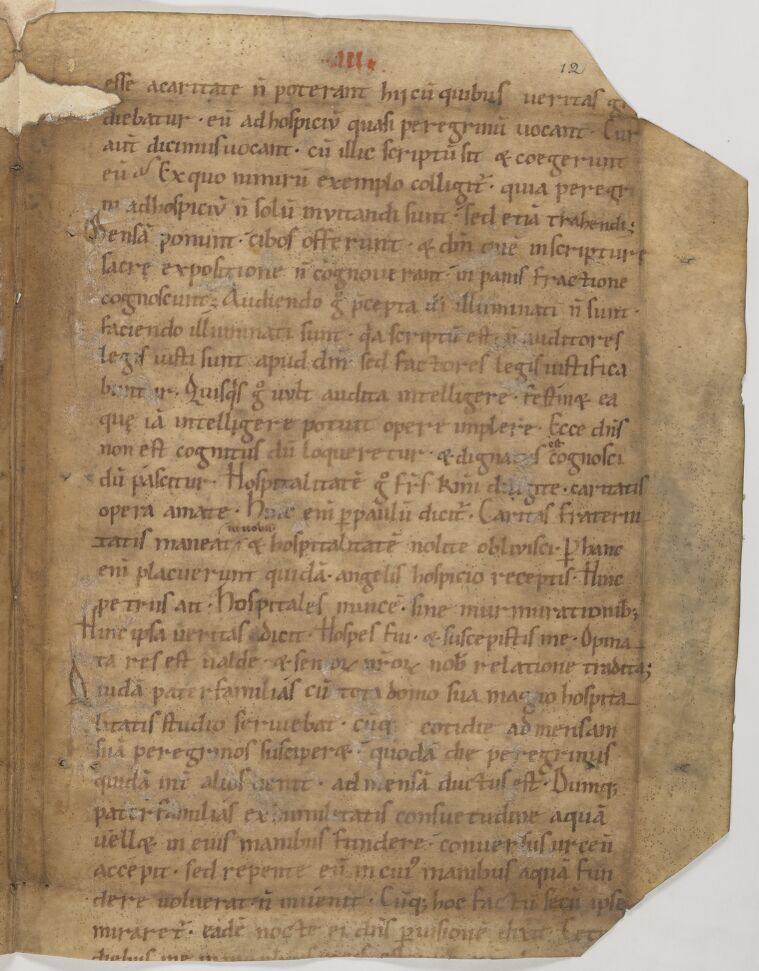 .III.
12
esse acaritate n̄ poterant hij cū quibus ueritas
diebatur · eū ad hospiciū quasi peregrinū uocant · Cur
aūt dicimus uocant · cū illic scriptū sit & coegerunt
eū Ex quo nimirū exemplo colligit̄ · quia peregri
ni ad hospiciū n̄ solū inuitandi sunt · sed etiā trahendi;
Mensā ponunt · cibos offerunt · & dm̄ quē inscripture
sacrę expositione n̄ cognouerant · in panis fractione
cognoscunt; Audiendo g̊ p̄cepta di illuminati n̄ sunt ·
faciendo illuminati sunt · q̇a scriptū est · n̄ auditores
legis iusti sunt apud dm̄ sed factores legis iustifica
buntur · Quisq̇s g̊ uult audita intelligere · festin& ea
quę iā intelligere potuit opere implere · Ecce dn̄s
non est cognitus dū loqueretur · & dignatus est cognosci
dū pascitur · Hospitalitatē g̊ fr̄s km̄i diligite · caritatis
opera amate · Hinc eni ꝑ paulū dicit̄ · Caritas fraterni
tatis maneat in uobis · & hospitalitatē nolite obliuisci · Ꝑ hanc
eni placuerunt quidā · angelis hospicio receptis · Hinc
petrus ait · Hospitales inuicē · sine murmurationib;
Hinc ipsa ueritas dicit · Hospes fui · & suscepistis me · Opina
ta res est ualde · & senioꝝ nr̄oꝝ nob̄ relatione tradita;
Quidā paterfamilias cū tota domo sua magno hospita
litatis studio seruiebat · cūq; cotidie ad mensam
suā peregrinos susciper& · quodā die peregrinus
quidā int̄ alios uenit · ad mensā ductus est · Dumq;
paterfamilias ex humilitatis consuetudine aquā
uell& in eius manibus fundere · conuersus urceū
accepit · sed repente eū in cuiꝰ manibus aquā fun
dere uoluerat n̄ inuenit · Cūq; hoc factū secū ipse
miraret̄ · eadē nocte ei dn̄s ꝑ uisionē dixit
diebus me in